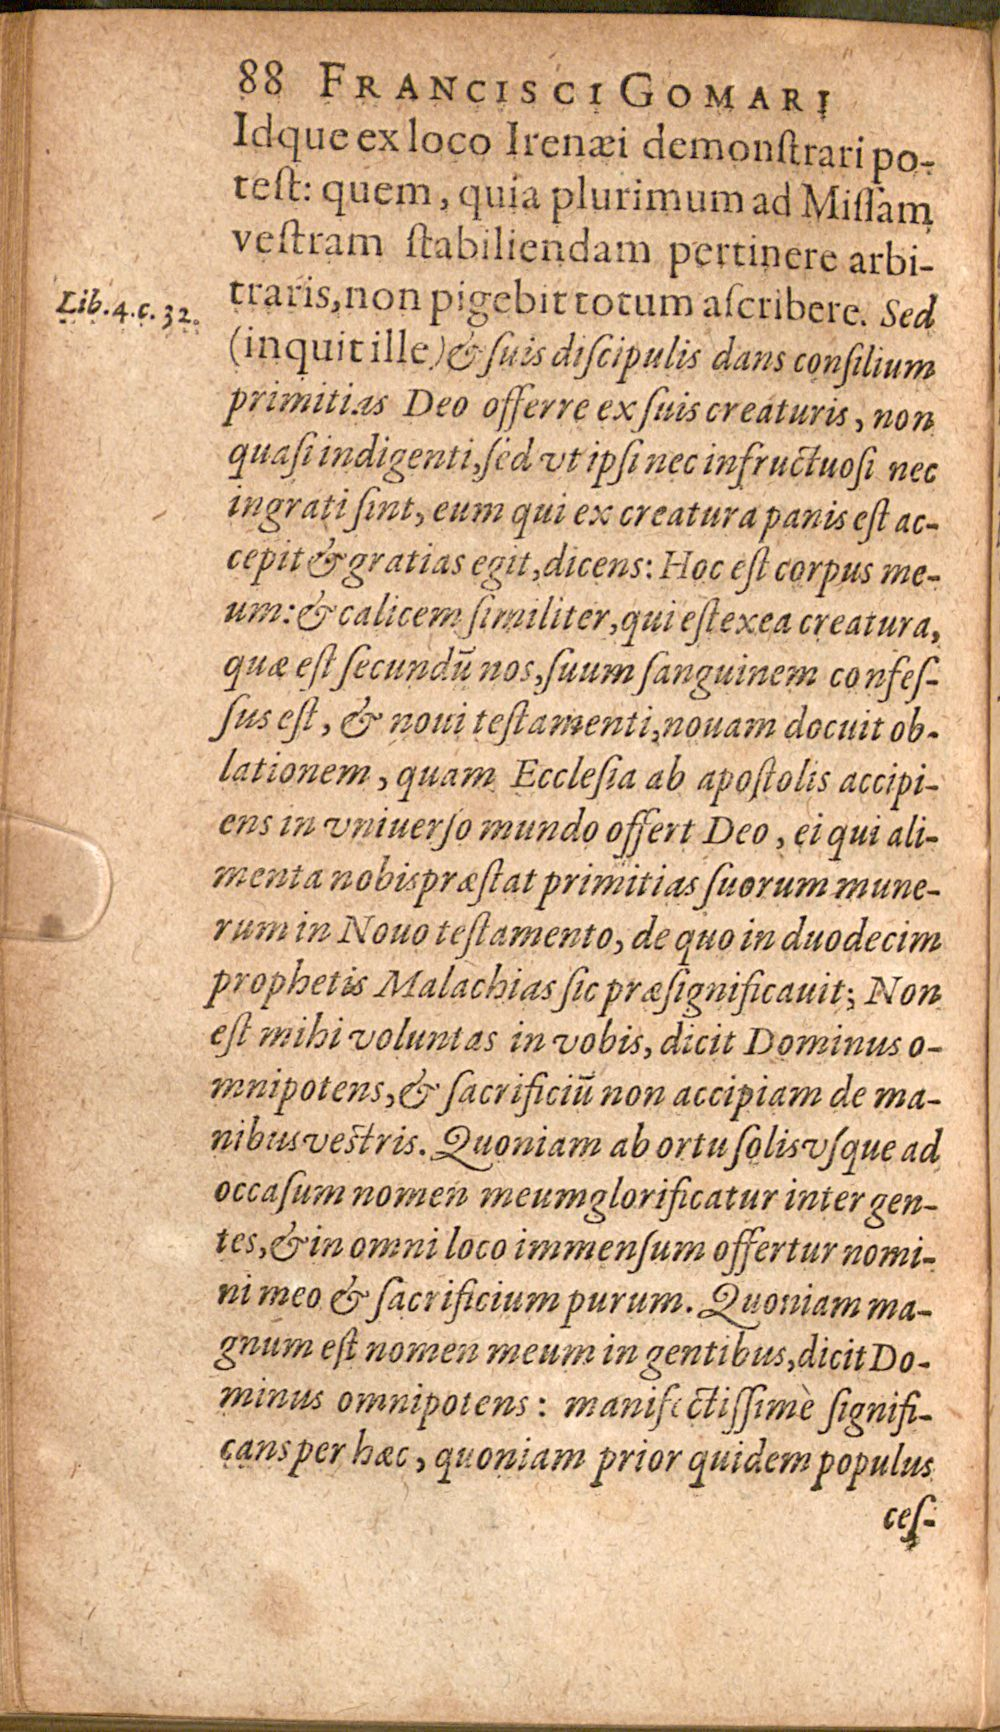 88 FRANCISCI GOMARI
Idque ex loco Irenæi demonſtrari po-
teſt: quem, quia plurimum ad Miſſam
veſtram ſtabiliendam pertinere arbi-
traris, non pigebit totum aſcribere. Sed
Lib. 4. c. 32.
(inquit ille) & ſuis diſcipulis dans conſilium
primitias Deo offerre ex ſuis creaturis, non
quaſi indigenti, ſed vt ipſi nec infructuoſi nec
ingrati ſint, eum qui ex creatura panis eſt ac-
cepit & gratias egit, dicens: Hoc eſt corpus me-
um: & calicem ſimiliter, qui eſt ex ea creatura,
quæ eſt ſecundū nos, ſuum ſanguinem confeſ-
ſus eſt, & noui teſtamenti, nouam docuit ob-
lationem, quam Eccleſia ab apoſtolis accipi-
ens in vniuerſo mundo offert Deo, ei qui ali-
menta nobis præſtat primitias ſuorum mune-
rum in Nouo teſtamento, de quo in duodecim
prophetis Malachias ſic præſignificauit; Non
eſt mihi voluntas in vobis, dicit Dominus o-
mnipotens, & ſacrificiū non accipiam de ma-
nibus veſtris. Quoniam ab ortu ſolis vſque ad
occaſum nomen meum glorificatur inter gen-
tes, & in omni loco immenſum offertur nomi-
ni meo & ſacrificium purum. Quoniam ma-
gnum eſt nomen meum in gentibus, dicit Do-
minus omnipotens: manifectiſſimè ſignifi-
cans per hæc, quoniam prior quidem populus
ceſ-